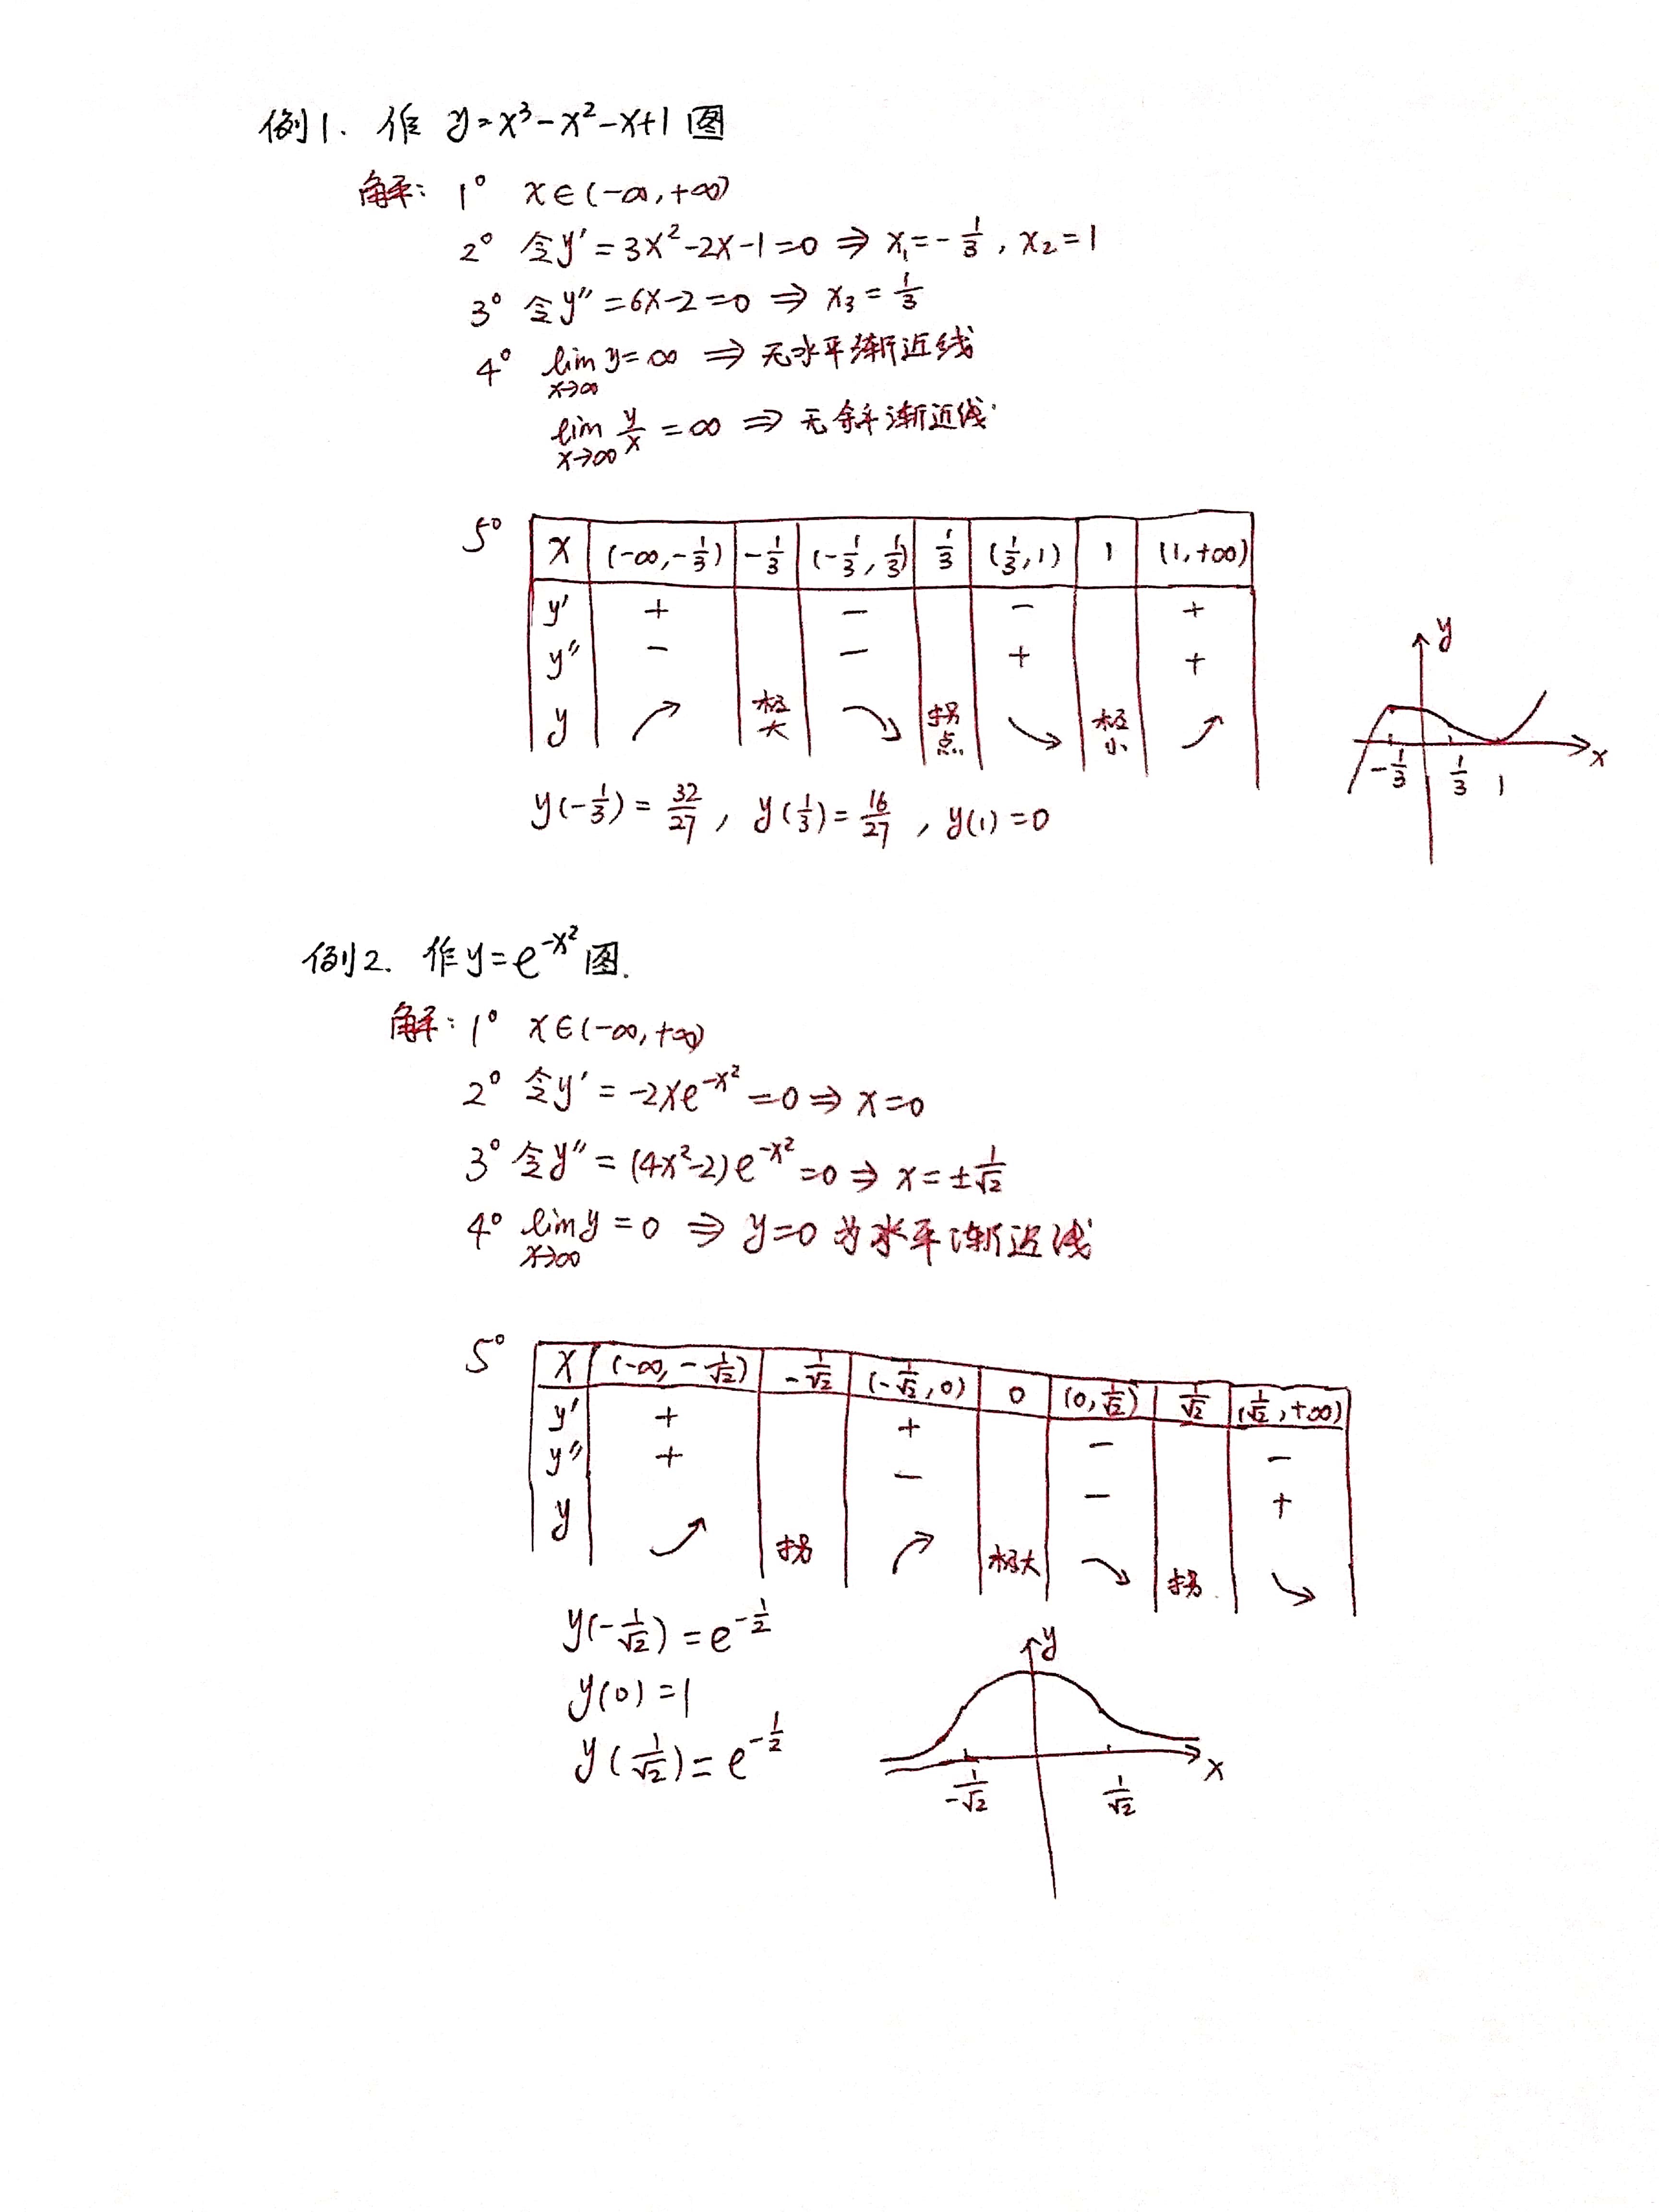 例1. 作 y=x³-x²-x+1 图
解: 1° x∈(-∞,+∞)
2° 令y′=3x²-2x-1=0 ⇒ x₁=-1/3, x₂=1
3° 令y″=6x-2=0 ⇒ x₃=1/3
4° lim x→∞ y=∞ ⇒ 无水平渐近线
lim x→∞ y/x =∞ ⇒ 无斜渐近线
5°
x (-∞,-1/3) -1/3 (-1/3,1/3) 1/3 (1/3,1) 1 (1,+∞)
y′ + - - +
y″ - - + +
y 极大 拐点 极小
y(-1/3)=32/27, y(1/3)=16/27, y(1)=0
y
x
-1/3 1/3 1
例2. 作y=e^(-x²)图.
解: 1° x∈(-∞,+∞)
2° 令y′=-2xe^(-x²)=0⇒x=0
3° 令y″=(4x²-2)e^(-x²)=0⇒x=±1/√2
4° lim x→∞ y=0 ⇒ y=0为水平渐近线
5°
x (-∞,-1/√2) -1/√2 (-1/√2,0) 0 (0,1/√2) 1/√2 (1/√2,+∞)
y′ + + - -
y″ + - - +
y 拐 极大 拐
y(-1/√2)=e^(-1/2)
y(0)=1
y(1/√2)=e^(-1/2)
y
x
-1/√2 1/√2